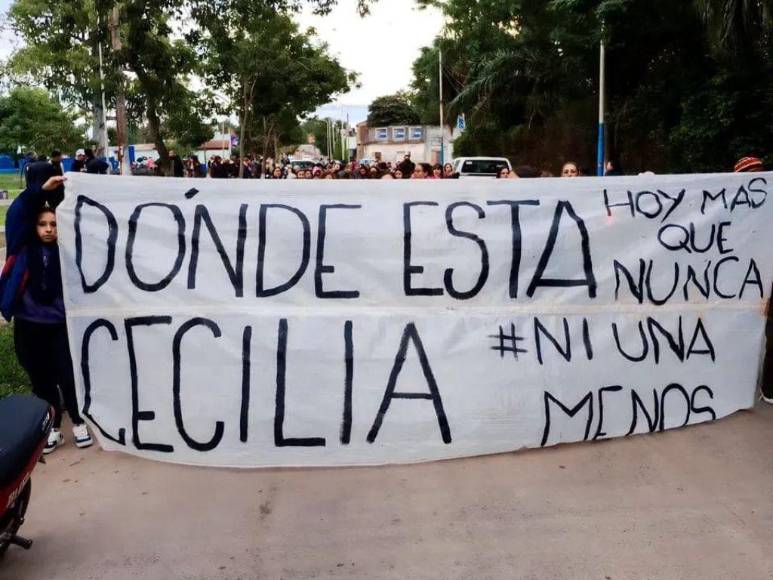 DÓNDE ESTA
CECILIA
HOY MAS
QUE
NUNCA
#NI UNA
MENOS